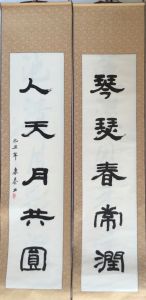 琴瑟春常潤
人天月共圓